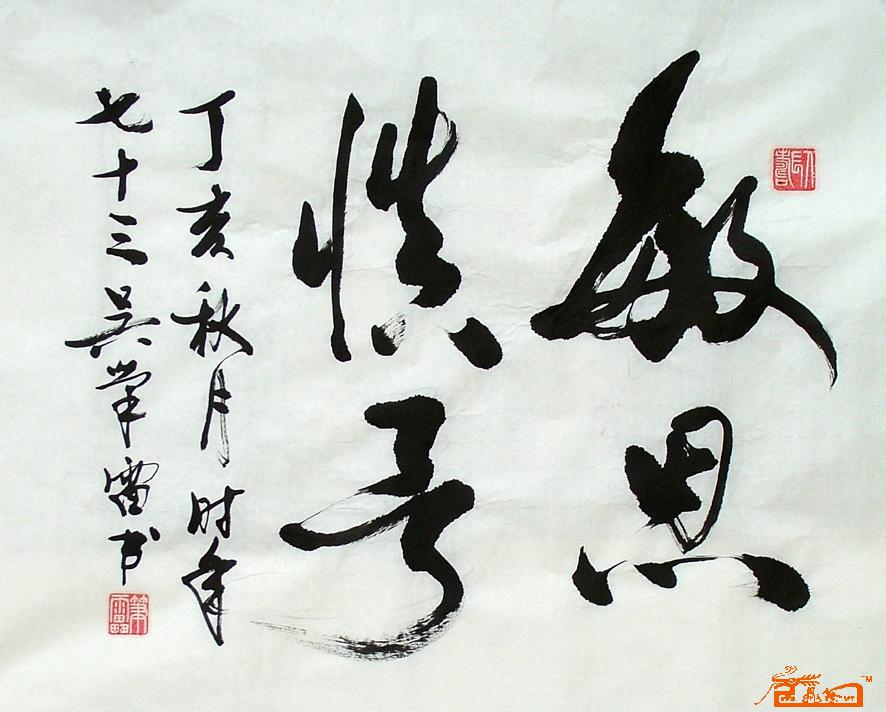 敏思
慎
丁亥秋月时年
七十三吴筆雷书